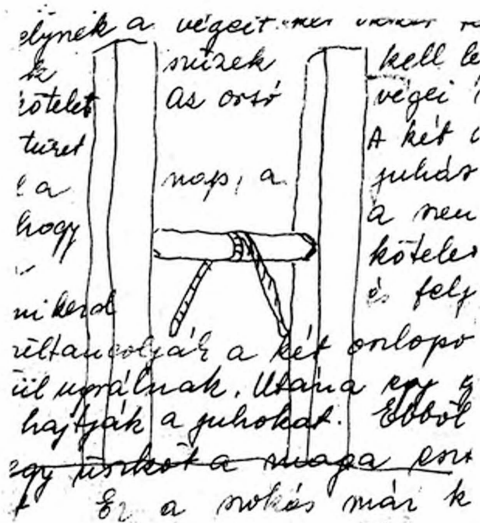 elynek a végeit
szüzek kell le
kötelet as orsó végei
tüzet A két
a nap, a juhás
hogy a szen
kötele
mikerd és felj
a két oszlopo
ül ugrálnak. Utána egy
hajtják a juhokat. Ebből
egy üszköt a maga esz
Ez a szokás már k